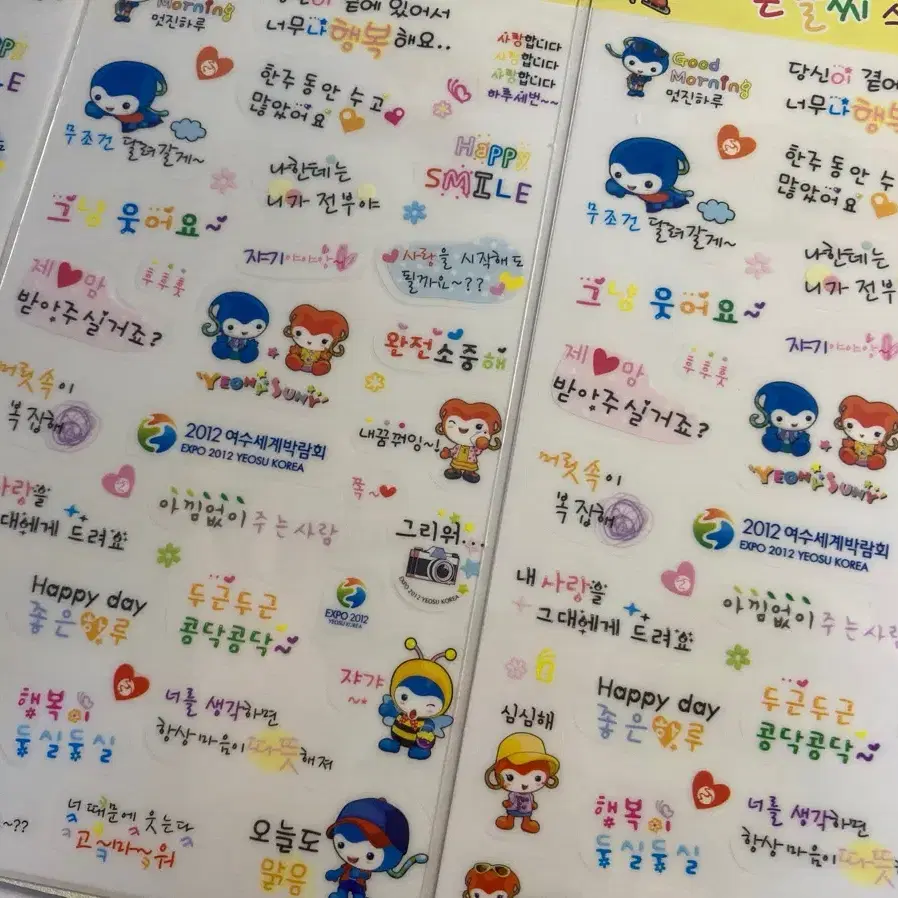 Morning
멋진하루
곁에 있어서
너무나 행복해요..
사랑합니다
사랑합니다
사랑합니다
하루세번~~
한주 동안 수고
많았어요
무조건 달려갈게~
Happy
SMILE
나한테는
니가 전부야
그냥 웃어요~
쟈기야야앙~
사랑을 시작해도
될까요~??
제 맘
받아주실거죠?
후후훗
YEONY SUNY
완전소중해
머릿속이
복잡해
2012 여수세계박람회
EXPO 2012 YEOSU KOREA
내꿈꿔잉~!
쪽~
사랑을
그대에게 드려요
아낌없이 주는사람
그리워..
EXPO 2012 YEOSU KOREA
Happy day
좋은하루
두근두근
콩닥콩닥~
EXPO 2012
YEOSU KOREA
쟈갸
~*
행복이
둥실둥실
너를 생각하면
항상 마음이 따뜻해져
~??
너 때문에 웃는다
고~마~워
오늘도
맑음
Good
Morning
멋진하루
당신이 곁에
너무나 행복
한주 동안 수
많았어요
무조건 달려갈게~
나한테는
니가 전부
그냥 웃어요~
쟈기야야앙~
제 맘
받아주실거죠?
후후훗
YEONY SUNY
머릿속이
복잡해
2012 여수세계박람회
EXPO 2012 YEOSU KOREA
내 사랑을
그대에게 드려요
아낌없이 주는사람
Happy day
좋은하루
두근두근
콩닥콩닥~
심심해
행복이
둥실둥실
너를 생각하면
항상 마음이 따뜻